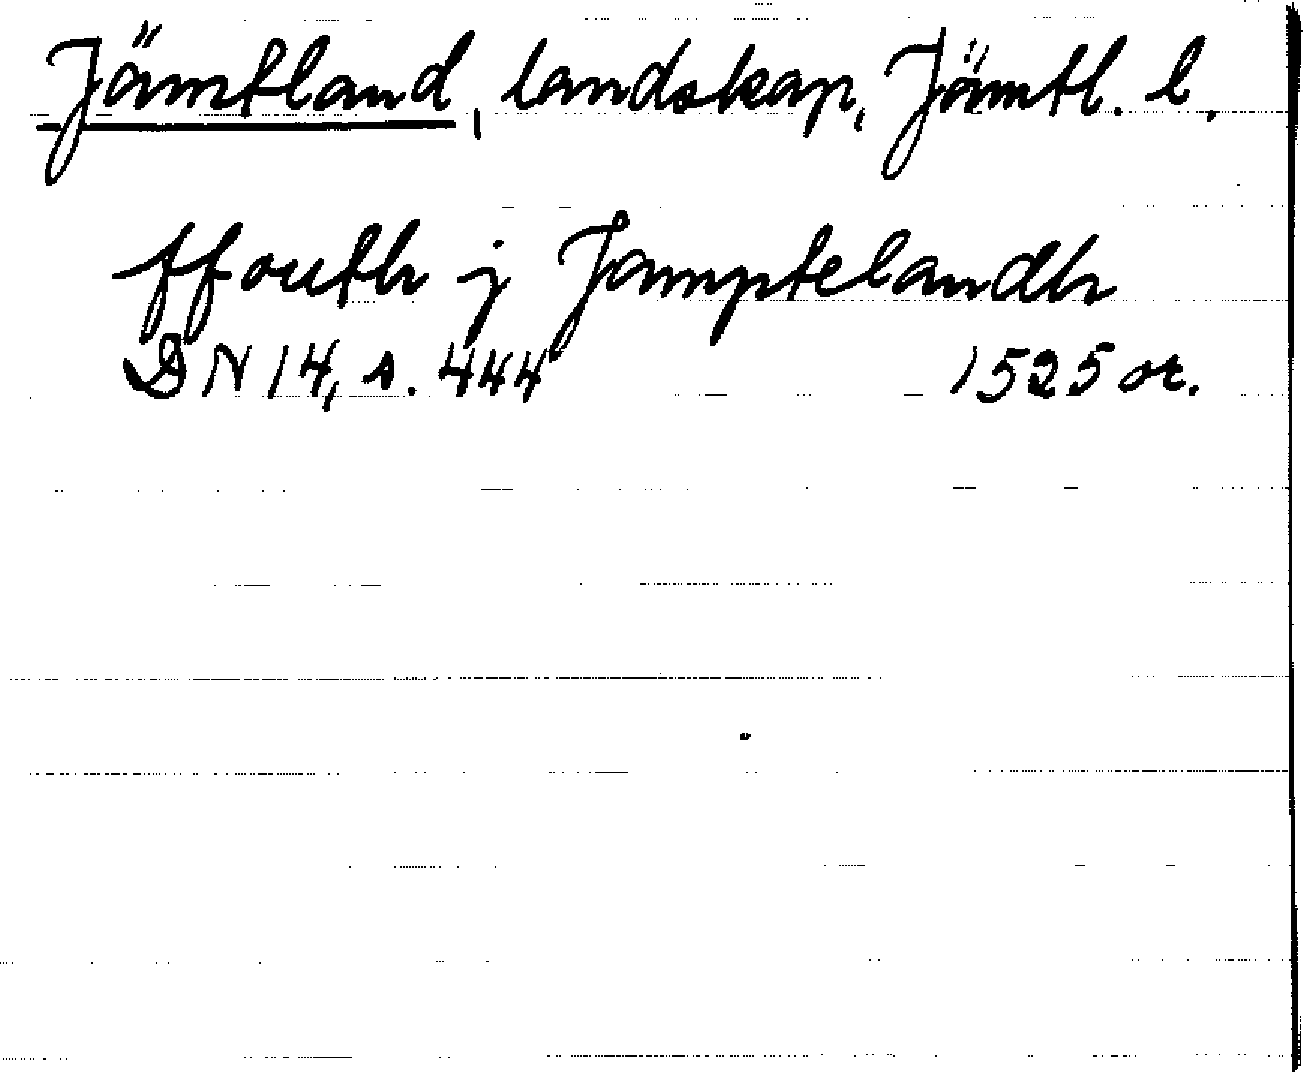 Jämtland, landskap, Jämtl. l.
ffouth j Jamptelandh
DN 14, s. 444 1525 or.